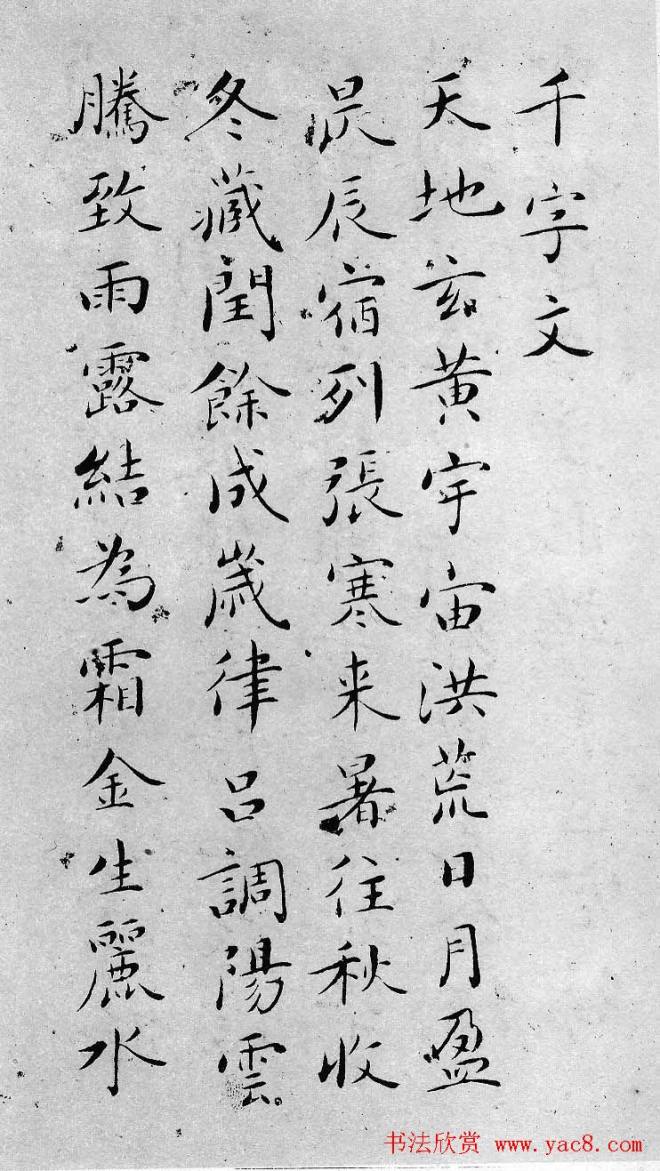 千字文
天地玄黄宇宙洪荒日月盈
昃辰宿列張寒来暑往秋收
冬藏閏餘成歲律呂調陽雲
騰致雨露結為霜金生麗水
书法欣赏 www.yac8.com